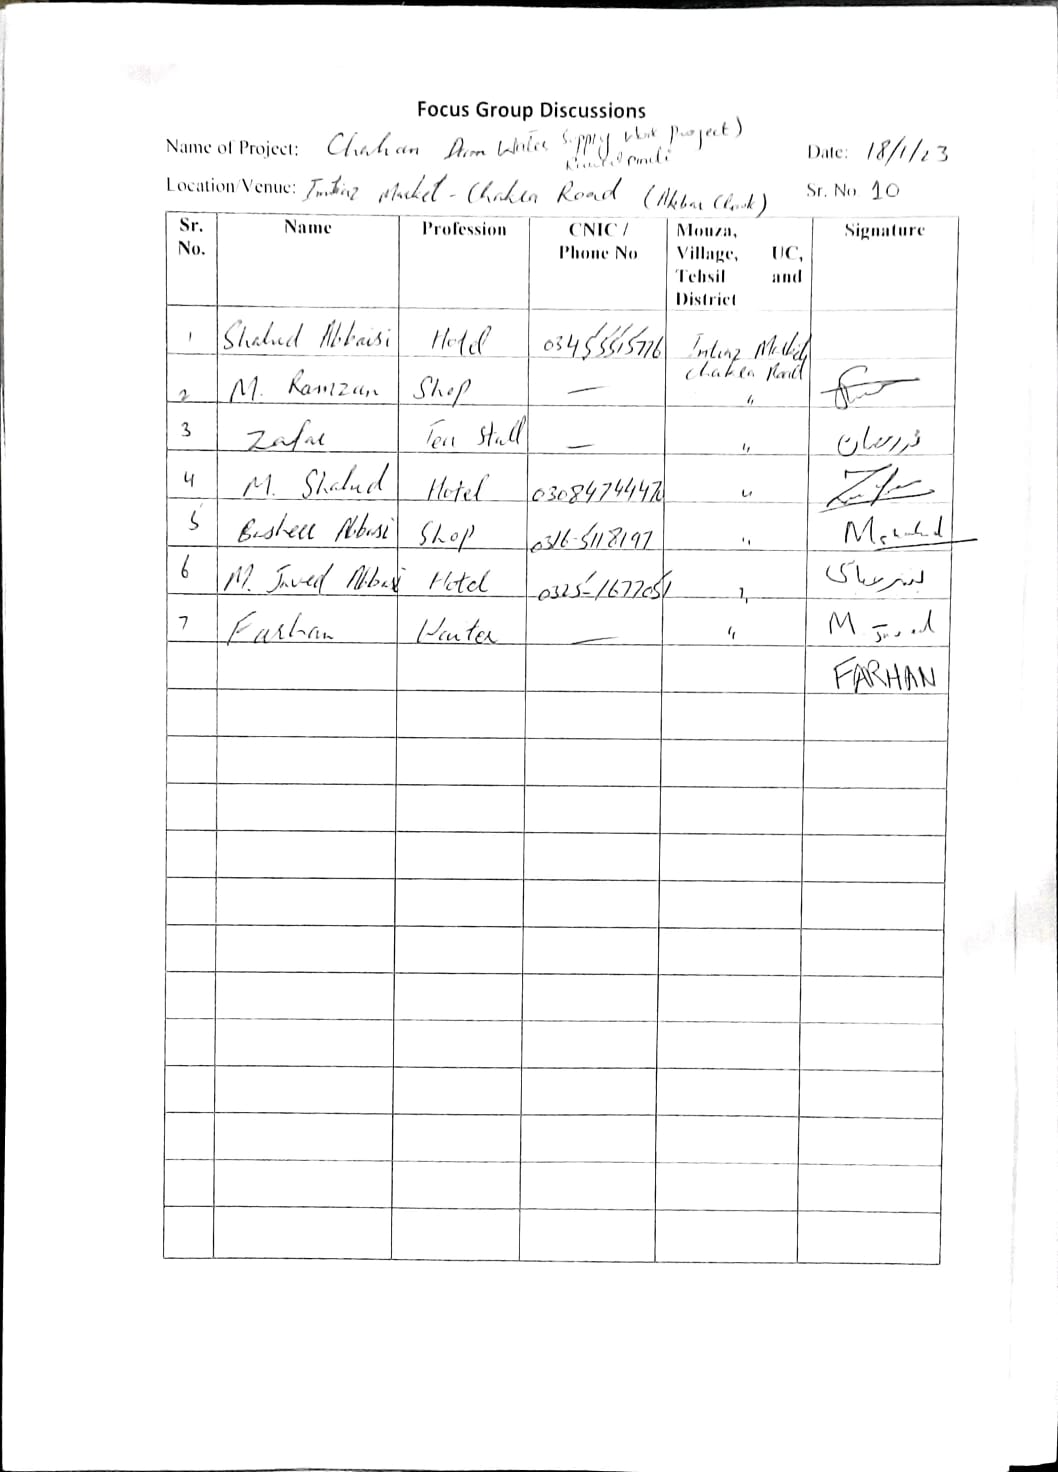 Focus Group Discussions
Name of Project: Chahan Dam Water Supply Project)
Date: 18/1/23
Location/Venue: Imtiaz Market - Chahan Road (Akbar Chowk)
Sr. No 10
Sr. No. Name Profession CNIC / Phone No Mouza, Village, UC, Tehsil and District Signature
1 Shahid Abbaisi Hotel Imtiaz Market Chahan Road
2 M. Ramzan Shop — "
3 Zafar Tea Stall — "
4 M. Shahid Hotel 03084744470 "
5 Basheer Abbasi Shop 0316-5118197 " M Shahid
6 M. Javed Abbasi Hotel 0325-1677051 "
7 Farhan — " M Javed
FARHAN